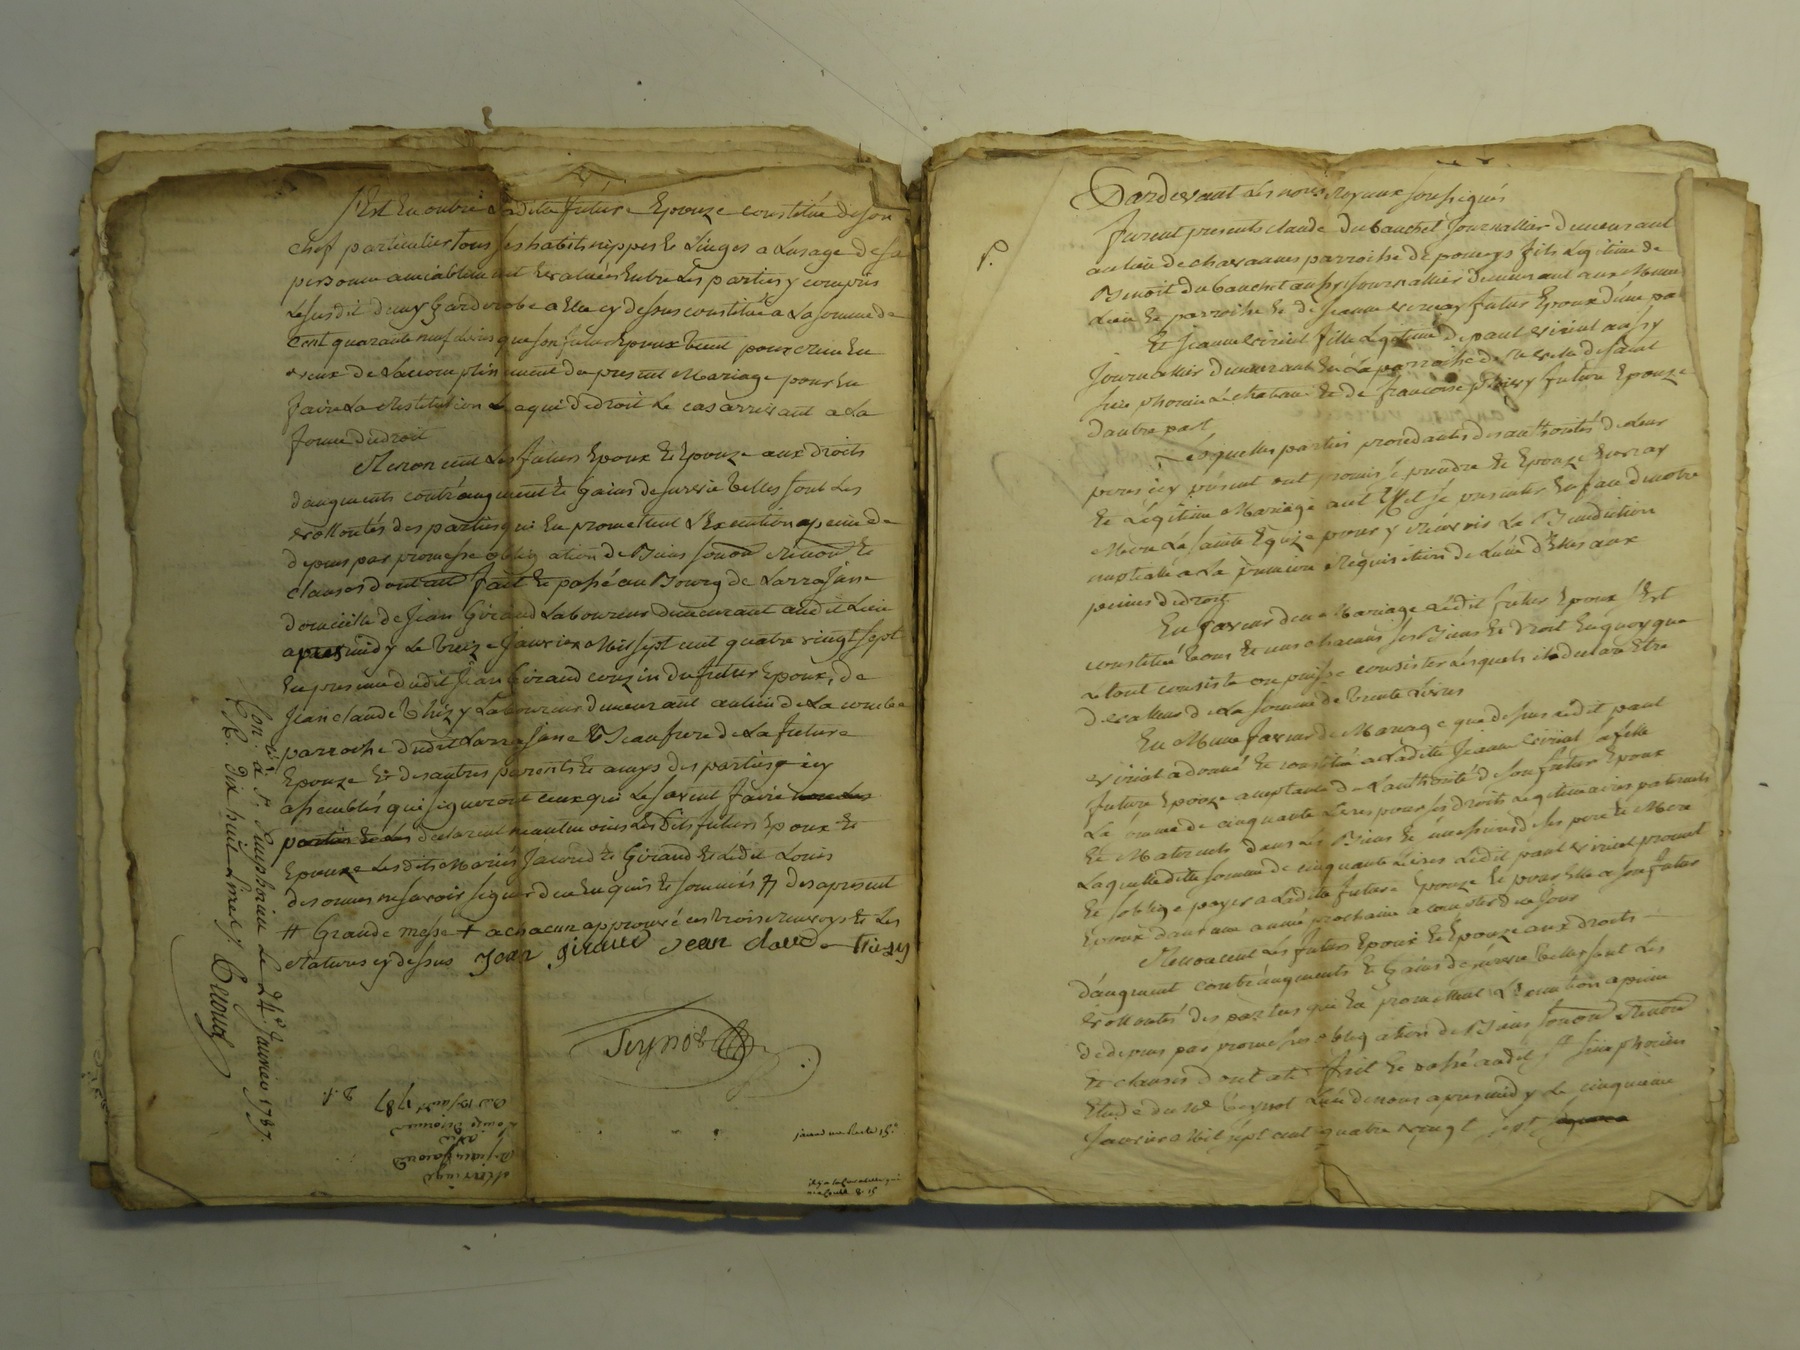 S'Est En outre Ladite future Epouze constituée de son
chef particulier tous ses habits nippes Et Linges a Lusage de sa
personne amiablement Evaluées Entre Les parties y compris
Le susdit demy garderobe a Elle cy dessus constitué a La somme de
Cent quarante neuf Livres que son futur Epoux
de Laccomplissement du present Mariage pour En
faire La Restitution a qui de droit Le cas arrivant a La
forme du droit
Renoncent Les futurs Epoux Et Epouze aux droits
daugments contr'augment Et gains de survie telles sont Les
vollontés des parties qui En promettent L'Execution a peine de
depens par promesse obligation de Biens Renon Et
clauses dont fait Et passé au Bourg de Larrajasse
domicille de Jean Giraud Laboureur demeurant audit Lieu
apres midy Le treize Janvier Mil sept cent quatre vingt sept
En presence dudit Jean Giraud couzin du futur Epoux, de
Jean claude thizy Laboureur demeurant au lieu de La combe
parroisse dudit Larrajasse Beaufrere de La future
Epouze Et des autres parents Et amys des parties icy
assemblés qui signeront ceux qui Le savent faire
declarent neantmoins Lesdits futurs Epoux Et
Epouze Lesdits Mariés Et Giraud Et Ledit Louis
ne savoir signer de ce Enquis Et sommés des apresent
# Grande messe + a chacun approuvé ces trois renvoys Et Les
ratures cy dessus Jean giraud Jean claude thizy
Con. à S. Simphorien le 24 Janvier 1787.
R. dix huit livres
Mariage
1787
Pardevant Les notres Royaux soussignés
furent presents claude dubanchet Journallier demeurant
au lieu de chavannes parroisse de pomeys fils Legitime de
Benoit dubanchet aussy Journallier demeurant aux Meme
Lieu Et parroisse Et de Jeanne futur Epoux d'une part
Et Jeanne viricel fille Legitime de paul viricel aussy
Journallier demeurant En La parroisse de
sur Simphorien Le chateau Et de francoise future Epouze
dautre part
Lesquelles parties procedantes des authorités de Leur
peres icy présent ont promis se prendre Et Epouzer En vray
Et Légitime Mariage Et se presenter En face de notre
Mere La sainte Eglize pour y recevoir La Benediction
nuptialle a La premiere Requisition de L'une d'Elles aux
peines de droit
En faveur du Mariage Ledit futur Epoux s'Est
constitué tous Et uns chacuns ses Biens Et droit En quoy que
Le tout consiste ou puisse consister Lesquels il declare Etre
de valleur de La somme de trente Livres
En Meme faveur de Mariage que dessus Ledit paul
viricel a donné Et constitué a Ladite Jeanne viricel sa fille
future Epouze acceptante de L'authorité de son futur Epoux
La somme de cinquante Livres pour ses droits Legitimaires paternels
Et Maternels dans Les Biens Et successions de ses pere Et Mere
Laquelle dite somme de cinquante Livres Ledit paul viricel promet
Et s'oblige payer a Ladite future Epouze Et pour Elle a son futur
Epoux dans une année prochaine a compter de ce Jour
Renoncent Les futurs Epoux Et Epouze aux droits
daugment contr'augments Et gains de survie telles sont Les
vollontés des parties qui En promettent L'Execution a peine
de depens par promesses obligation de Biens Renon
Et clauses dont acte fait Et passé audit St Simphorien
Etude du Me Lun de nous apres midy Le cinquieme
Janvier Mil sept cent quatre vingt sept